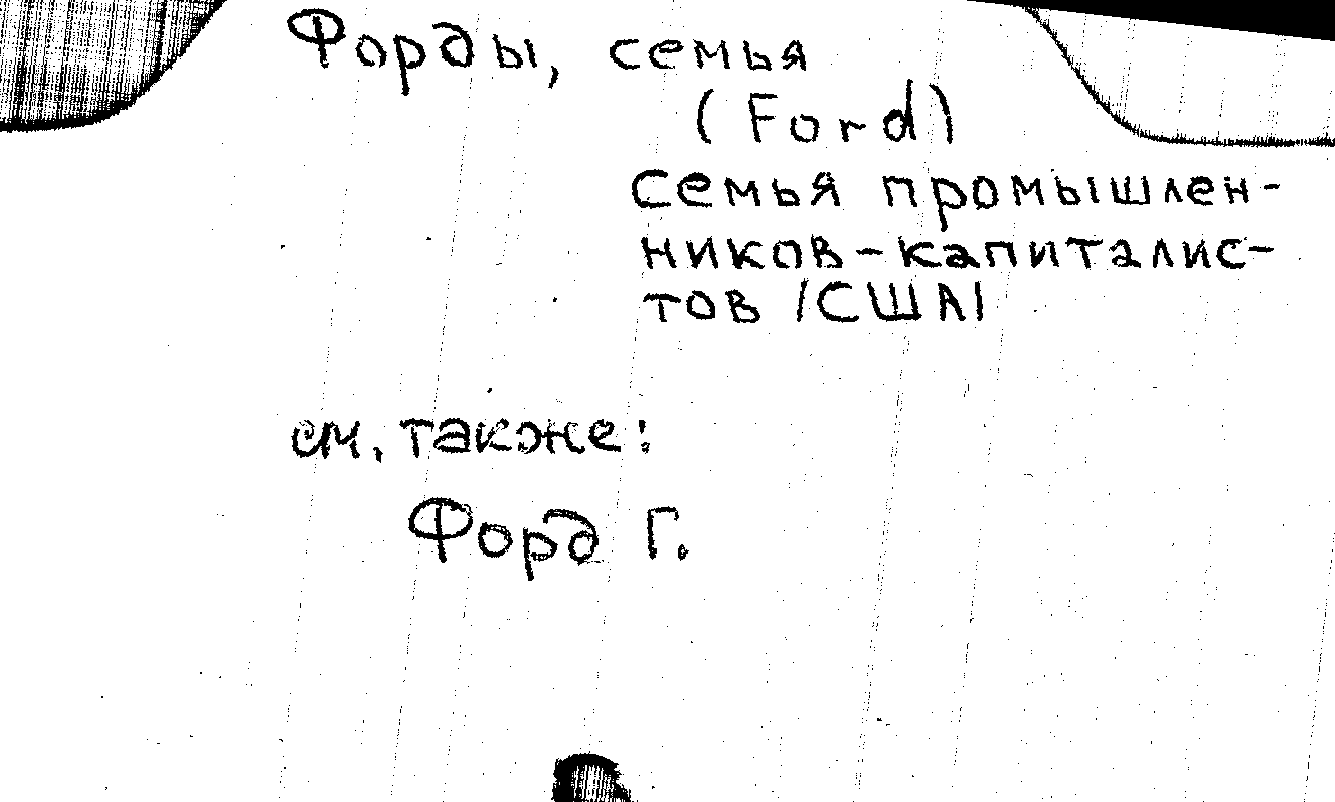 Форды, семья
(Ford)
Семья промышлен-
ников-капиталис-
тов /США/
см. также:
Форд Г.